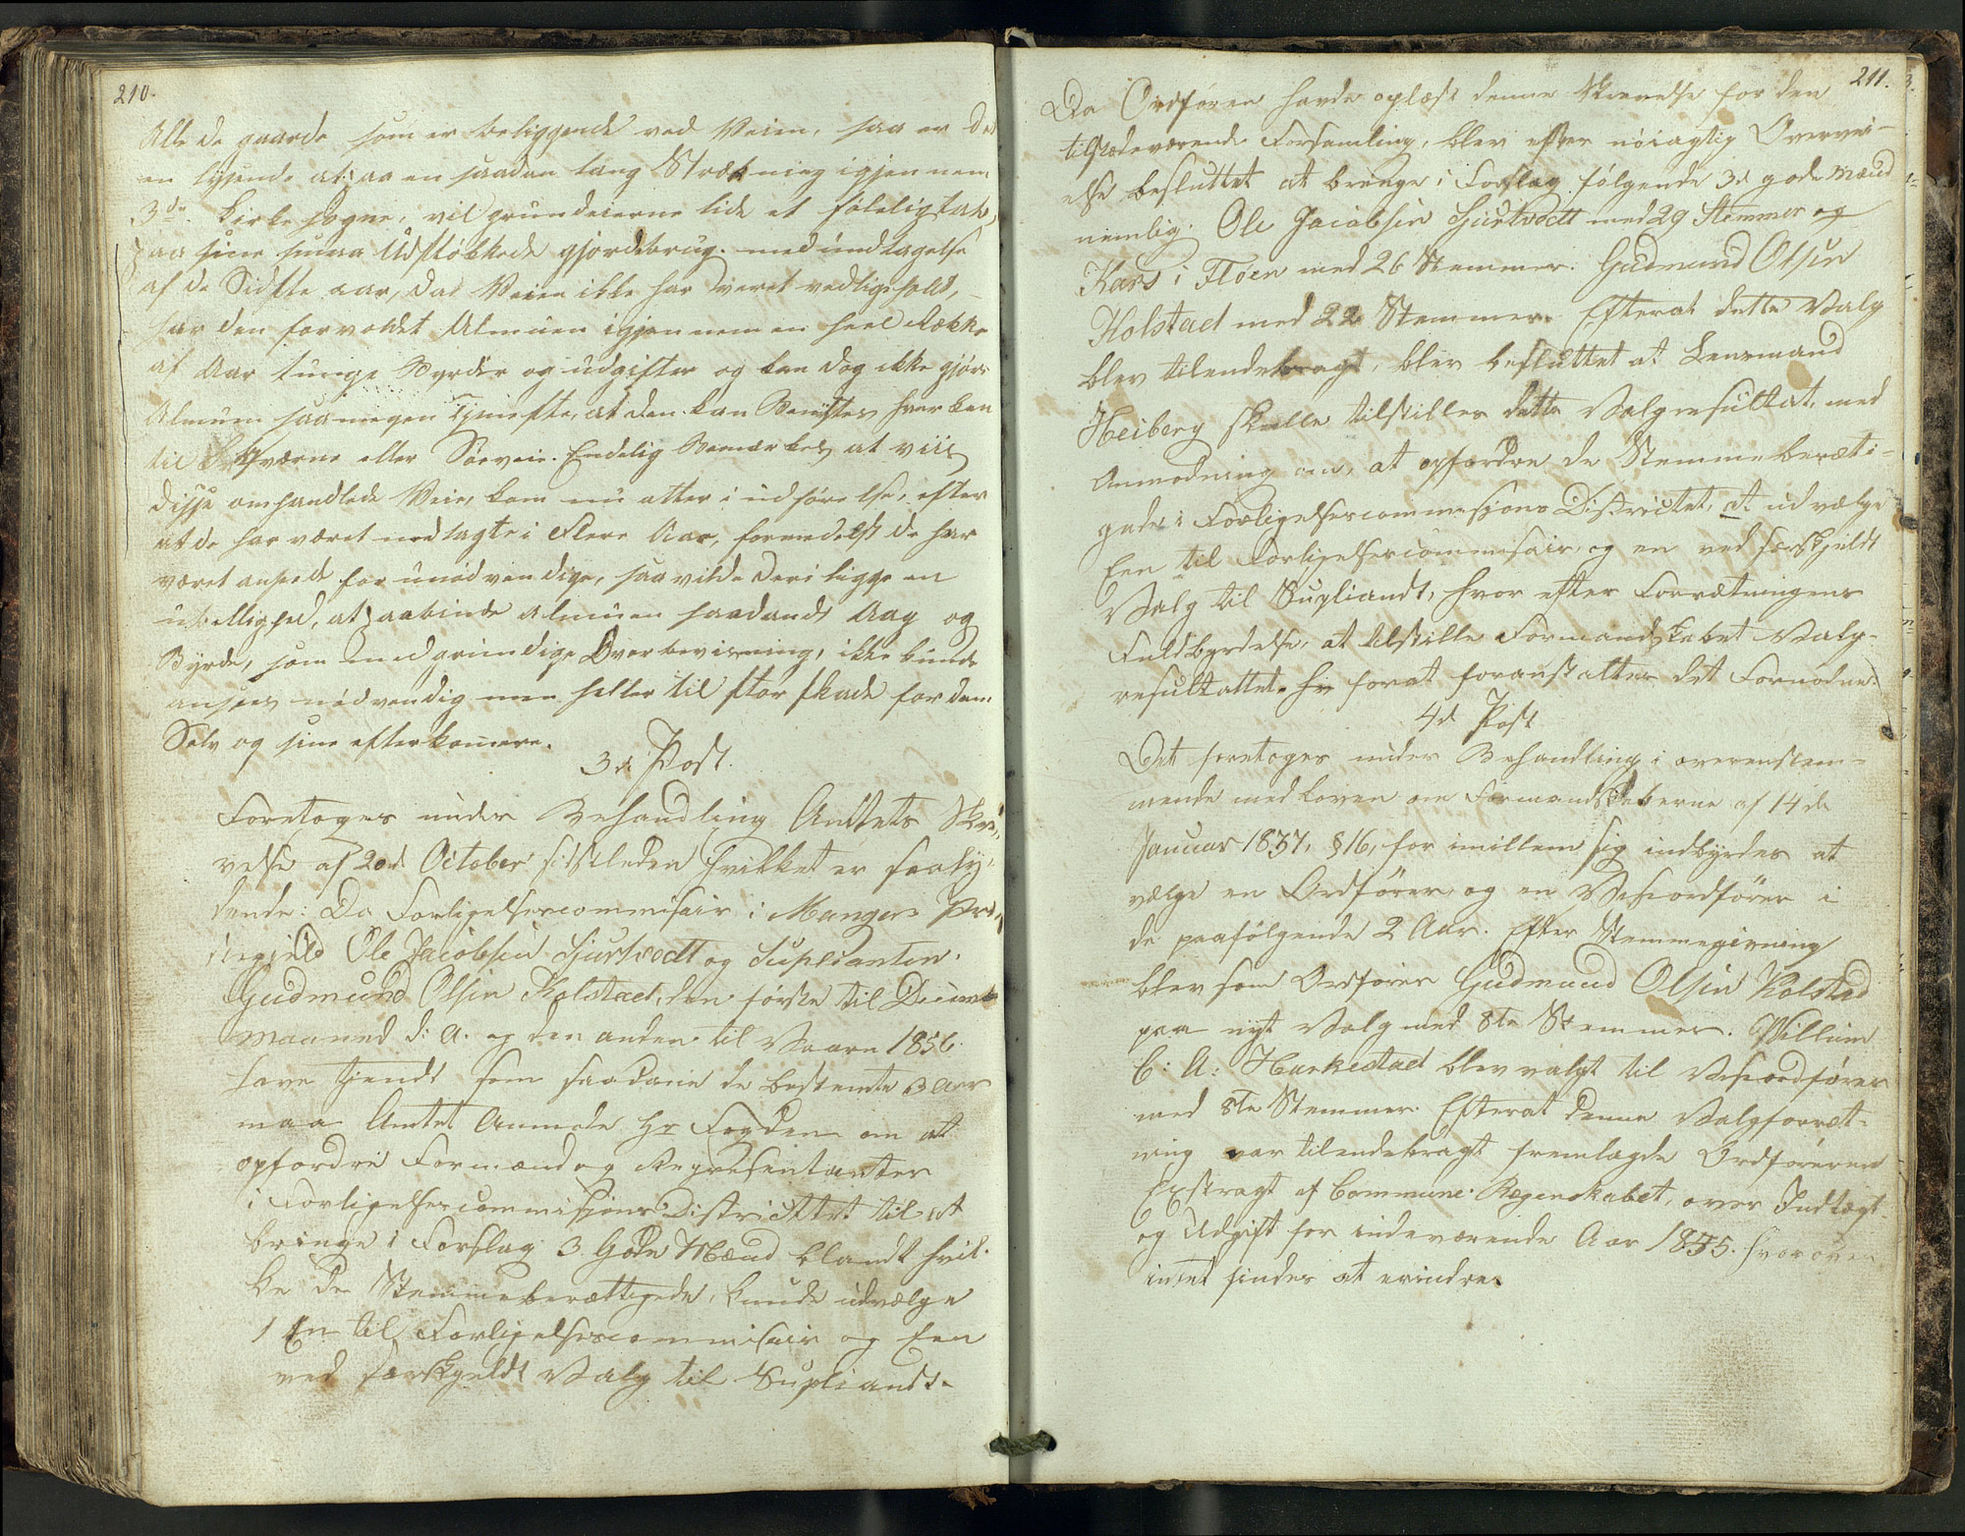 210.
Alle de gaarde som er beliggende ved Veien, saa er det
en lysende at paa en saadan lang Strækning igjennem
3de Kirke sogne, vil grundeierne lide et føleligtab,
paa sine smaa Udstøkkede gjordebrug. med undtagelse
af de Sidste aar, da Veien ikke har været vedligeholdt,
har den forvoldet Almuen igjennem en heel Række
af Aar tunge Byrder og udgifter og kan dog ikke gjøre
Almuen saa megen Tjeneste, at den kan Benyttes hverken
til eller Søeveie. Endelig Bemærkes, at viis
disse omhandlede Veie, kom nu atter i udførelse, efter
at de har været nedlagte i Flere Aar, formedelst de har
været anseet for unødvendige, saa vilde deri ligge en
ubillighed, at paabinde almuen saadandt Aag og
Byrde, som med grundige Overbeviisning, ikke kunde
ansees nødvendig men heller til stor skade for dem
Selv og sine efterkomere.
3d Post.
Foretoges under Behandling Amtets Skri-
velse af 20d October sidstleden hvilket er saaly-
dende: Da Forligelsescommisair i Mangers Præ-
stegield Ole Jacobsen Hjertvedt og Suplianten
Gudmund Olsen Kolstad, den første til Decemb
maaned d: A. og den anden til Vaaren 1856
have tjendt som saadane de bestemte 3 Aar
maa Amtet Anmode Hr Fogden om at
opfordre Formænd og Representanter
i Forligelsescommissions Districttet til at
bringe i Forslag 3 Gode Mænd blandt hvil-
ke de Stemmeberættigede, kunde udvælge
1 En til Forligelsescommisair og Een
ved særskjeldt Valg til Supliandt.
211.
Da Ordføren havde oplæst denne Skrivelse for den
tilstædeværende Forsamling, blev efter nøiagtig Overvei-
else besluttet at bringe i Forslag følgende 3d gode Mænd
nemlig. Ole Jacobsen Hjertvedt med 29 Stemmer og
Lars i Fløen med 26 Stemmer. Gudmund Olsen
Kolstad med 22 Stemmer. Efterat dette Valg
blev tilendebragt, blev besluttet at Lensmand
Heiberg skulle tilstilles dette Valgresultat, med
Anmodning om, at opfordre de Stemmeberæti-
gede i Forligelsescommissions Districtet, at udvælge
Een til Forligelsescommisair og en ved særskjeldt
Valg til Supliandt, hvor efter Forrætningens
Fuldbyrdelse, at tilstille Formandskabet Valg-
resultattet for at foranstalter det Fornødne.
4d Post
Det foretoges under Behandling i overenstem-
mende med Loven om Formandskaberne af 14de
Januar 1837, § 16, for imillem sig indbyrdes at
vælge en Ordfører og en Viseordfører i
de paafølgende 2 Aar. Efter Stemmegivning
blev som Ordfører Gudmund Olsen Kolstad
paa nyt Valg med 8te Stemmer. Willum
C: A: Harkestad blev valgt til Viseordfører
med 8te Stemmer. Efterat denne Valgforret-
ning var tilendebragt fremlagde Ordføreren
Exstragt af Commune Regenskabet, over Indtægt
og Udgift for indeværende Aar 1855. hvorover
intet findes at erindre.